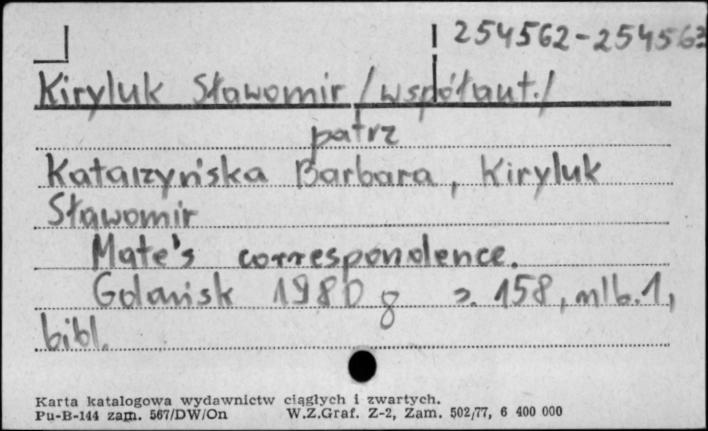 254562-254563
Kiryluk Sławomir /współaut./
patrz
Katarzyńska Barbara, Kiryluk
Sławomir
Mate's correspondence.
Gdańsk 1980 8 s. 158, nlb. 1,
bibl.
Karta katalogowa wydawnictw ciągłych i zwartych.
Pu-B-144 zam. 567/DW/On W.Z.Graf. Z-2, Zam. 502/77, 6 400 000